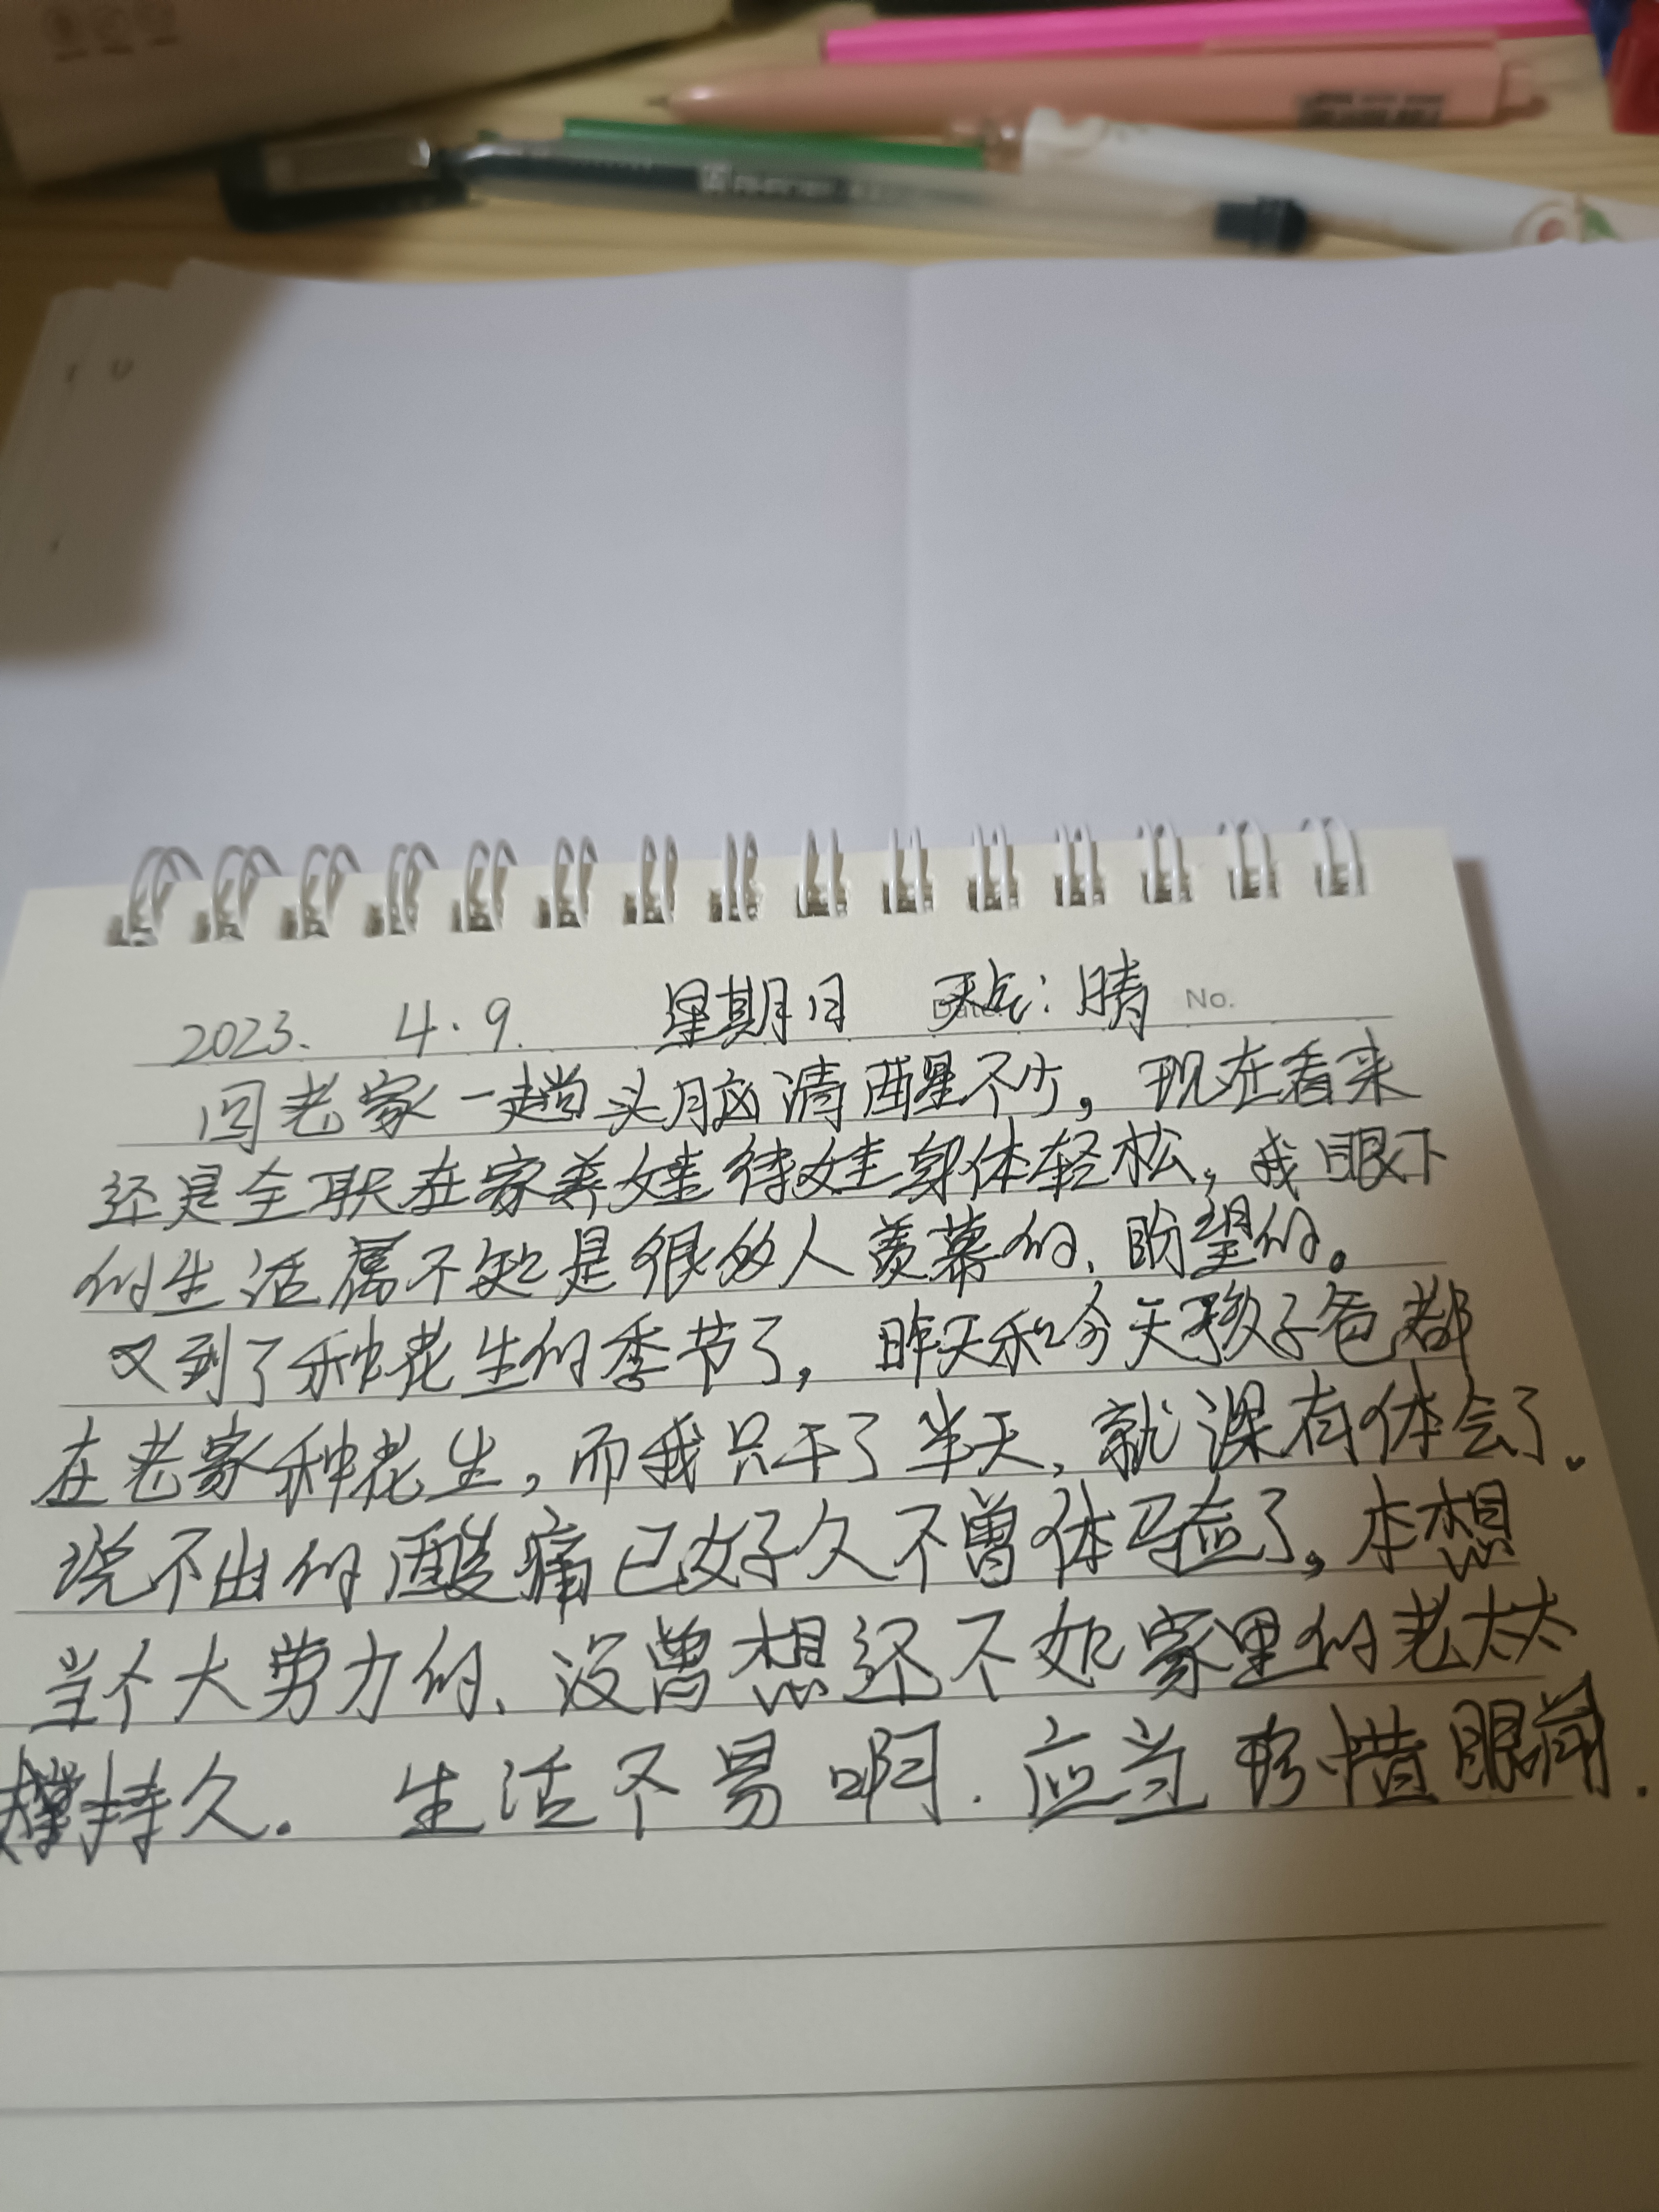 2023. 4.9. 星期日 天气:晴 No.
回老家一趟头脑清醒不少,现在看来
还是全职在家养娃待娃身体轻松,我眼下
的生活属不知是很多人羡慕的、盼望的。
又到了种花生的季节了,昨天和今天孩子爸都
在老家种花生,而我只干了半天,就深有体会了.
说不出的酸痛已好久不曾体验了,本想
当个大劳力的、没曾想还不如家里的老太太
撑持久. 生活不易啊. 应当珍惜眼前.